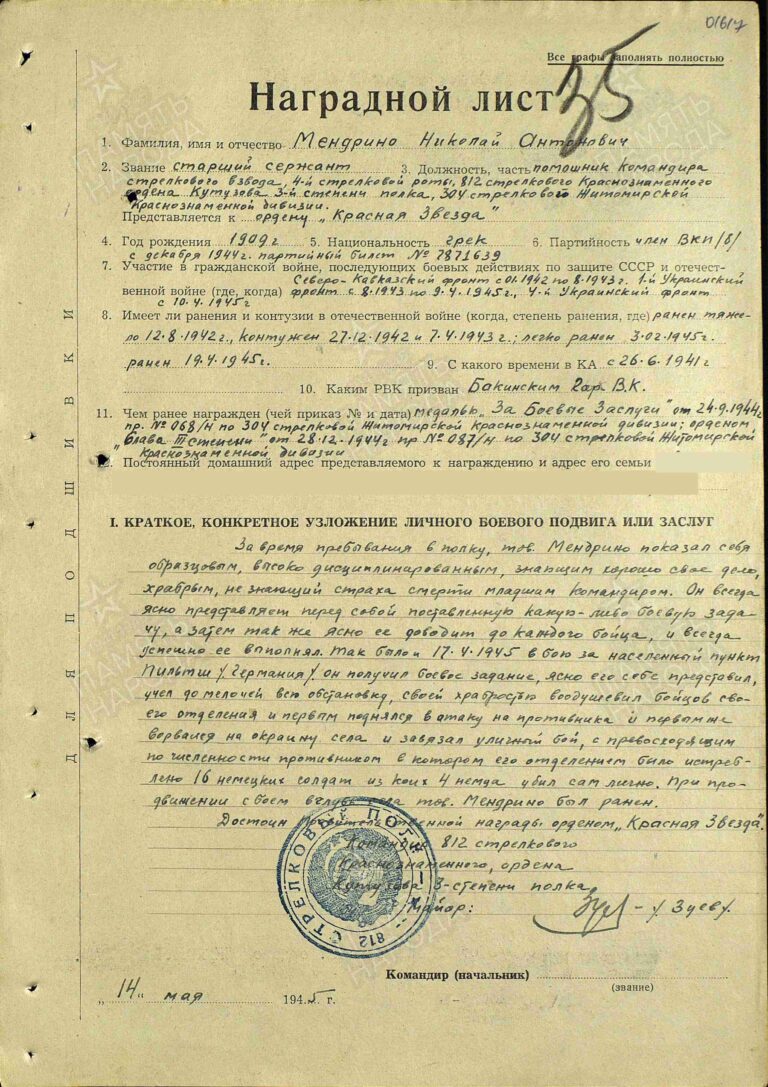 01617
Все графы заполнять полностью
Наградной лист 35
1. Фамилия, имя и отчество Мендрино Николай Антонович
2. Звание старший сержант 3. Должность, часть помошник командира
стрелкового взвода, 4-й стрелковой роты, 812 стрелкового Краснознаменного
ордена Кутузова 3-й степени полка, 304 стрелковой Житомирской
Краснознаменной дивизии.
Представляется к ордену „Красная Звезда"
4. Год рождения 1909 г 5. Национальность грек 6. Партийность член ВКП/б/
с декабря 1944 г. партийный билет № 7871639
7. Участие в гражданской войне, последующих боевых действиях по защите СССР и отечест-
Северо-Кавказский фронт с 01.1942 по 8.1943 г. 1-й Украинский
венной войне (где, когда) фронт с 8.1943 по 9.4.1945 г., 4-й Украинский фронт
с 10.4.1945 г
8. Имеет ли ранения и контузии в отечественной войне (когда, степень ранения, где) ранен тяже-
ло 12.8.1942 г., контужен 27.12.1942 и 7.4.1943 г.; легко ранен 3.02.1945 г.
ранен 19.4.1945 г. 9. С какого времени в КА с 26.6.1941 г
10. Каким РВК призван Бакинским гор В.К.
11. Чем ранее награжден (чей приказ № и дата) медалью „За Боевые Заслуги" от 24.9.1944 г
пр. № 068/н по 304 стрелковой Житомирской Краснознаменной дивизии; орденом
„Слава III степени" от 28.12.1944 г пр № 087/н по 304 стрелковой Житомирской
Краснознаменной дивизии
Постоянный домашний адрес представляемого к награждению и адрес его семьи
I. КРАТКОЕ, КОНКРЕТНОЕ УЗЛОЖЕНИЕ ЛИЧНОГО БОЕВОГО ПОДВИГА ИЛИ ЗАСЛУГ
За время пребывания в полку, тов. Мендрино показал себя
образцовым, высоко дисциплинированным, знающим хорошо свое дело,
храбрым, не знающий страха смерти младшим командиром. Он всегда
ясно представляет перед собой поставленную какую-либо боевую зада-
чу, а затем так же ясно ее доводит до каждого бойца, и всегда
успешно ее выполнял. Так было и 17.4.1945 в бою за населенный пункт
Пильтш /Германия/ он получил боевое задание, ясно его себе представил,
учел до мелочей всю обстановку, своей храбростью воодушевил бойцов сво-
его отделения и первым поднялся в атаку на противника и первым же
ворвался на окраину села и завязал уличный бой, с превосходящим
по численности противником в котором его отделением было истреб-
лено 16 немецких солдат из коих 4 немца убил сам лично. При про-
движении с боем вглубь села тов. Мендрино был ранен.
Достоин Правительственной награды орденом „Красная Звезда".
Командир 812 стрелкового
Краснознаменного, ордена
Кутузова 3-степени полка
Майор: - /Зуев/
812 СТРЕЛКОВЫЙ ПОЛК
Командир (начальник)
(звание)
„14" мая 1945 г.
ДЛЯ ПОДШИВКИ
ПАМЯТЬ НАРОДА